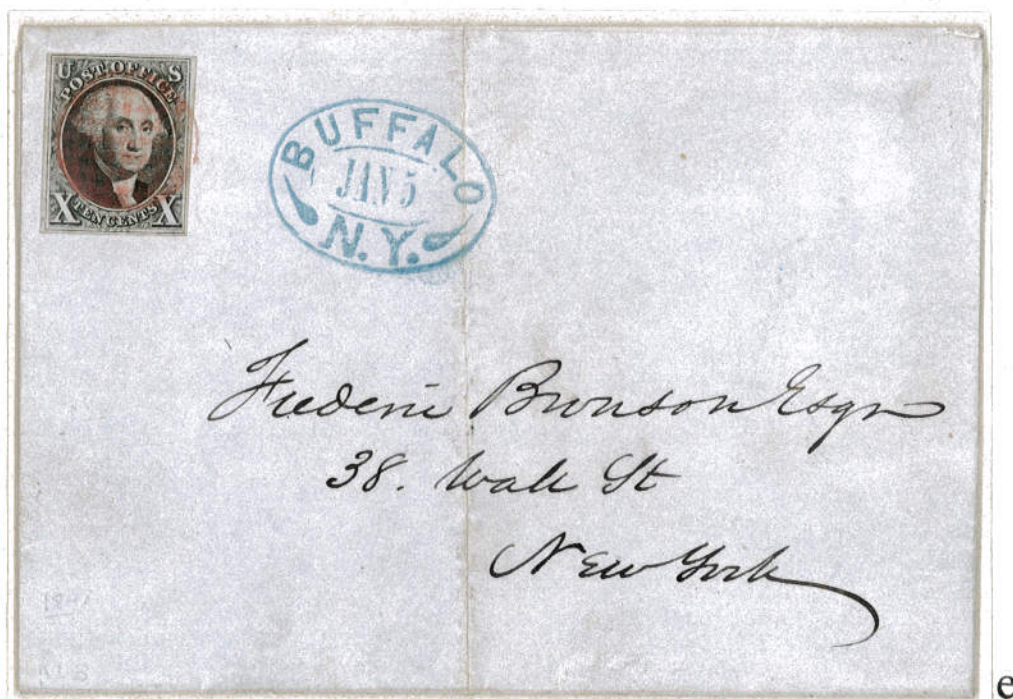 U S
POST OFFICE
X TEN CENTS X
BUFFALO
JAN 5
N.Y.
Frederic Bronson Esqr
38. Wall St
New York
e